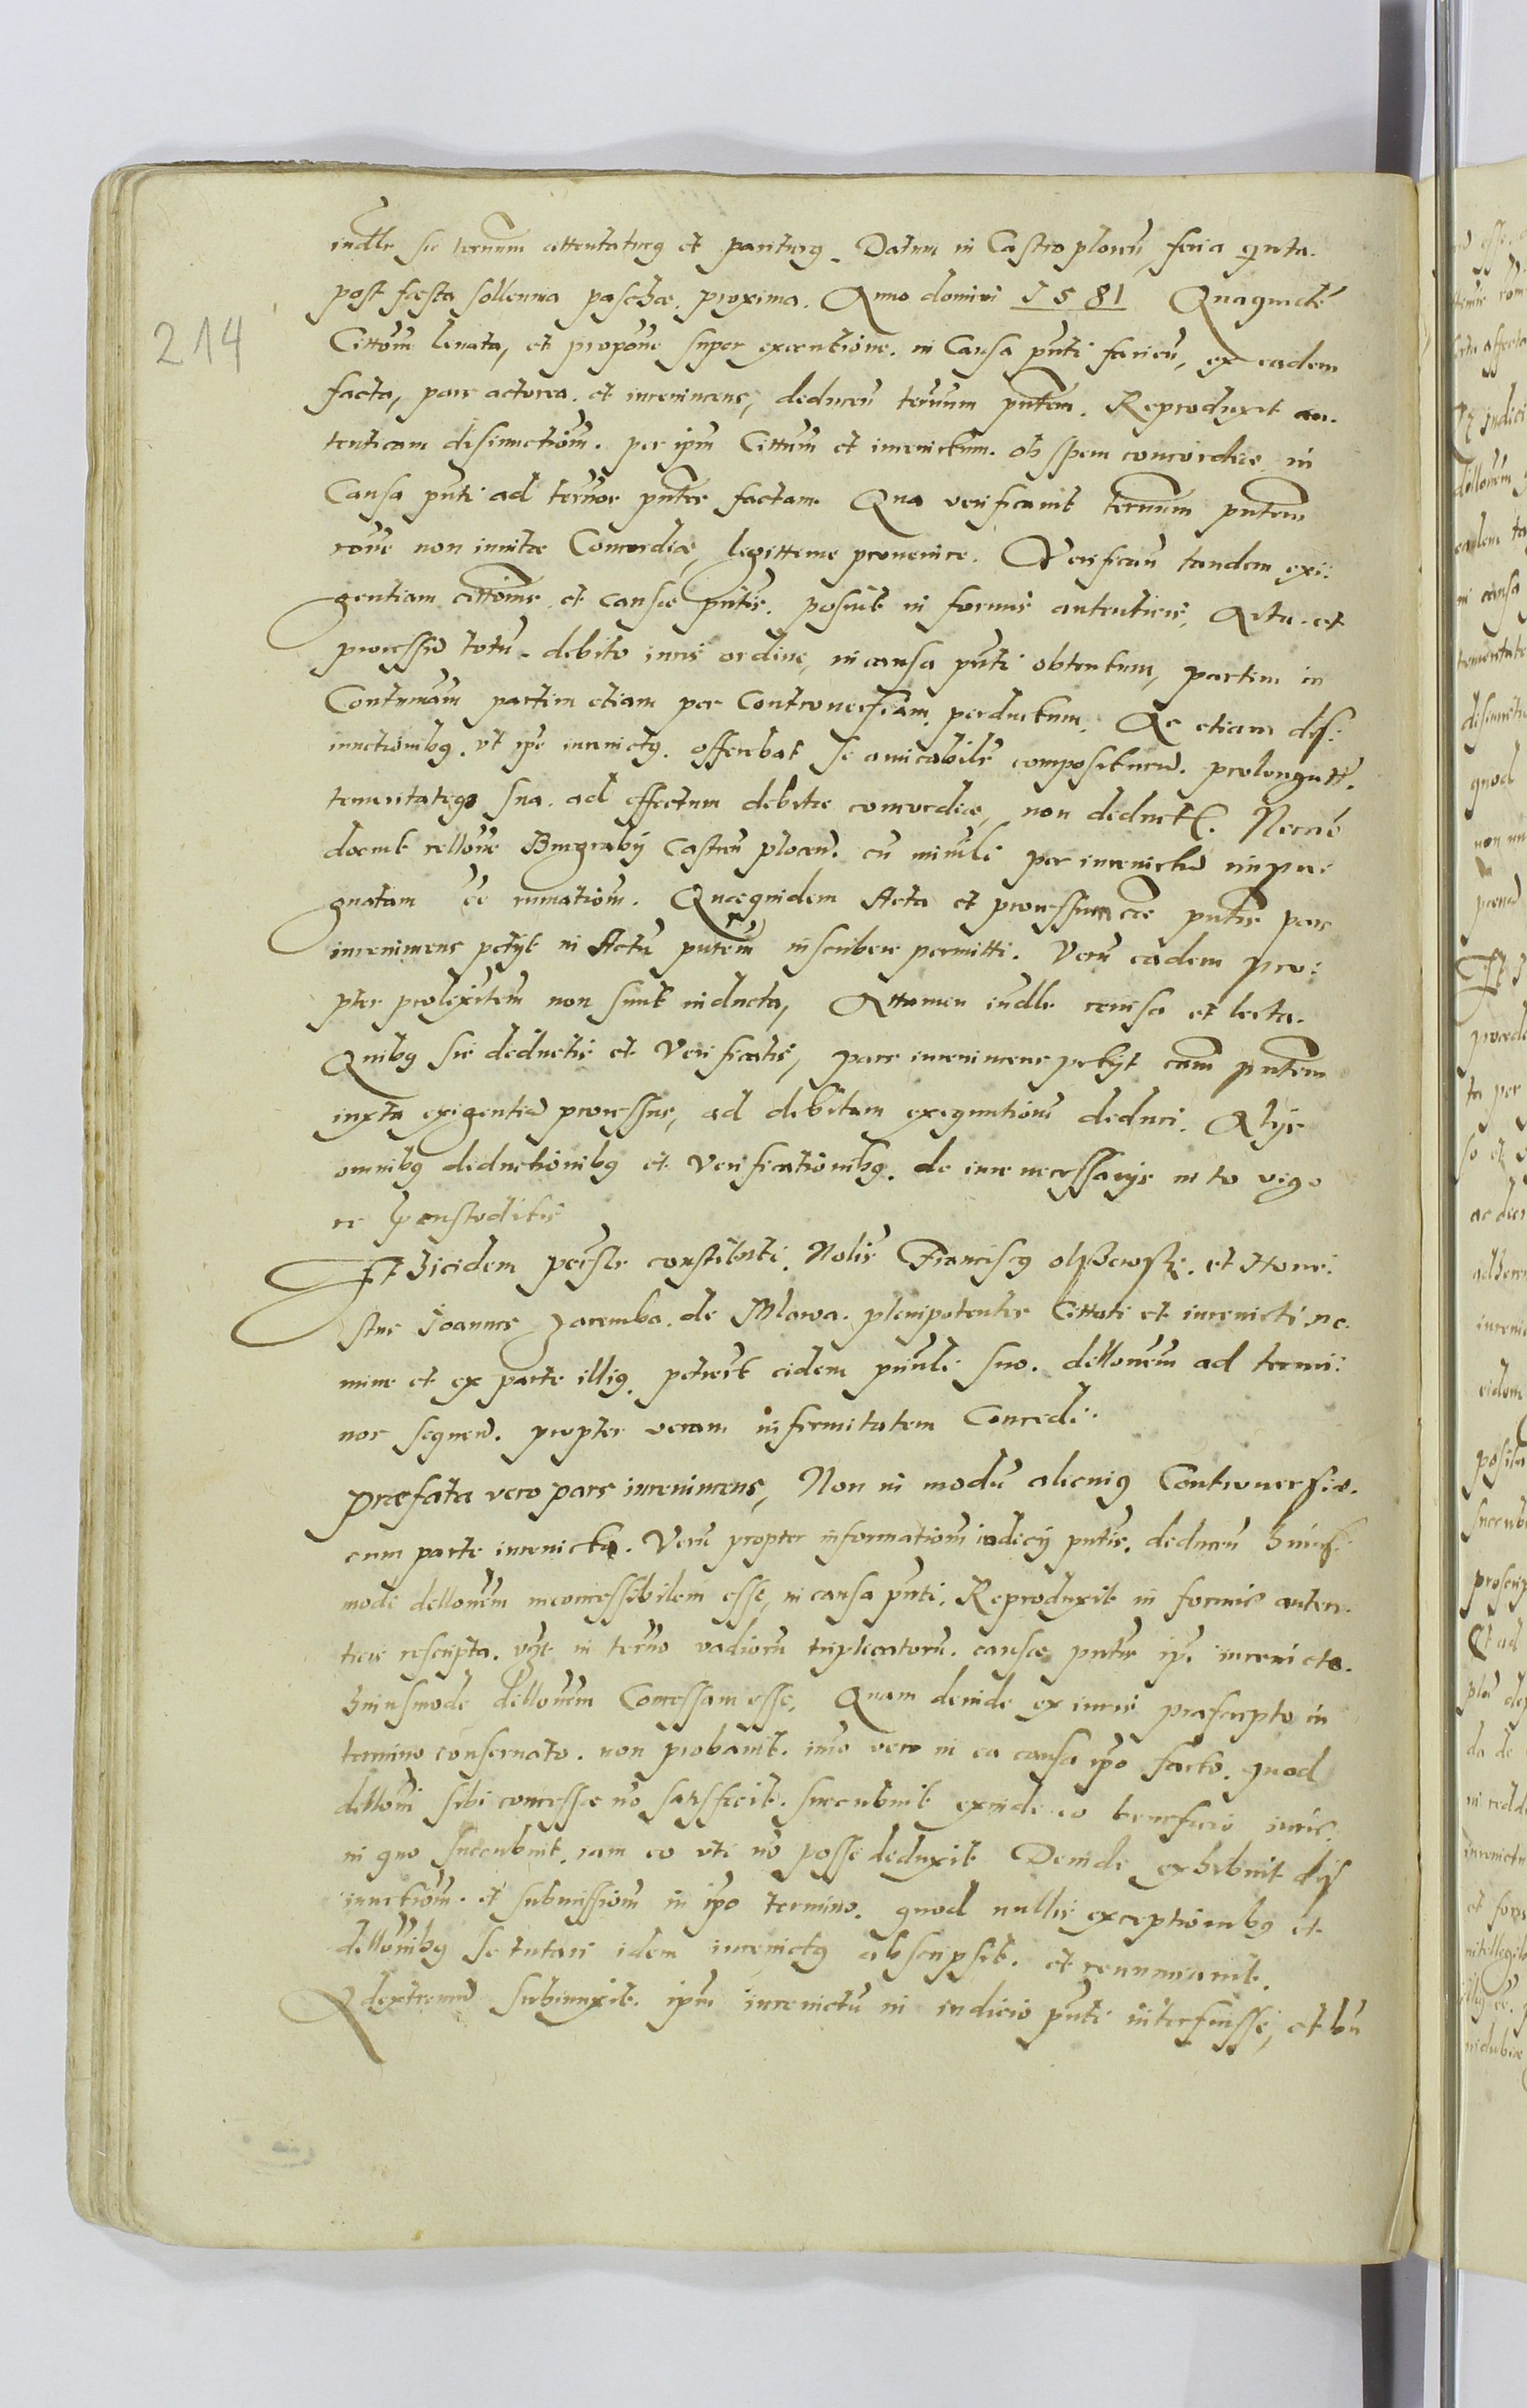 iudle sic ternum attentaturq et pariturq. Datum in Castro plocen, feria qnta.
post fæsta sollenia paschæ. proxima. Anno domini 1581 Quaquidē
214
Cittõne lenata, et propõne super executione. in Causa pnti facien, ex eadem
facta, pars actorea. et iurenincens, deducen ternum pntem. Reproduxit au.
tenticam disiunctiom. per ipm Cittum et iurenictum. ob spem concordiæ in
Causa pnti ad ternos pntes factam. Qua verificanit ternum pntem
rõne non initæ Concordiæ, legitteme prouenire. Verifican tandem exi:
gentiam cittõnis et causæ pntis. posuit in formis autenticis, Acta et
processu totu. debito iuris ordine, in causa pnti obtentum, partim in
Contumãm partim etiam per Controuersiam. perductum. Ac etiam dis:
iunctionibq. vt ipe iurenictq. offerebat se amicabilr compositurũ. prolongatt.
temeritateqz sua. ad effectum debitæ concordiæ, non deduct. Necnō
docuit rellõne Burgrabij Castren plocen. cũ minili per iurenictũ impu:
gnatam ee rumatiom. Quæquidem Acta et processum cæ pntis pars
iurenincens petijt in Actũ pntem inscribere permitti. Verũ eadem pro:
pter prolixitem non sunt inducta, Attamen iudlr reuisa et lecta.
Quibq sic deductis et Verificatis, pars iurenincens petijt cam pntem
iuxta exigentiã processus, ad debitam exequutiom deduci. Alijs
omnibq deductionibq et Verificationibq. de iure necessarijs in to vigo
re custoditis
Et ibidem persolr constituti. Nobilis Franciscq olszewski. et Hone:
stus Joannes Zaremba. de Mlawa. plenipotentes Cittati et iurenicti no.
mine et ex parte illiq. petierut eidem pnuli suo. dillonem ad termi:
nos sequen. propter veram infirmitatem Concedi.
Præfata vero pars iurenincens, Non in modũ alicuiq Controuersiæ.
cum parte iurenicta. Verũ propter informatiom iudicij pntis. deducen huius
modi dellonem inconcessibilem esse, in causa pnti. Reproduxit in formis auten.
ticis rescripta. vizt in terno vadiorũ triplicatorũ. causæ pntis ipi iurenicto.
huiusmodi dellonem Concessam esse. Quam deinde ex iuris præscripto in
termino conseruato. non probanit. imo vero in ea causa ipo facto. quod
dilloni sibi concessæ nõ satisfecit. succubuit exinde eo beneficio iuris.
in quo succubuit. iam eo vti nõ posse deduxit Deinde exhibuit dis
iunctiom. et submissiom in ipo termino. quod nullis exceptionibq et
dillonibq se tutari idem iurenictq abscripsit. et renunciauit.
Adextremũ subiunxit. ipm iurenictũ in iudicio pnti interfuisse, et bn